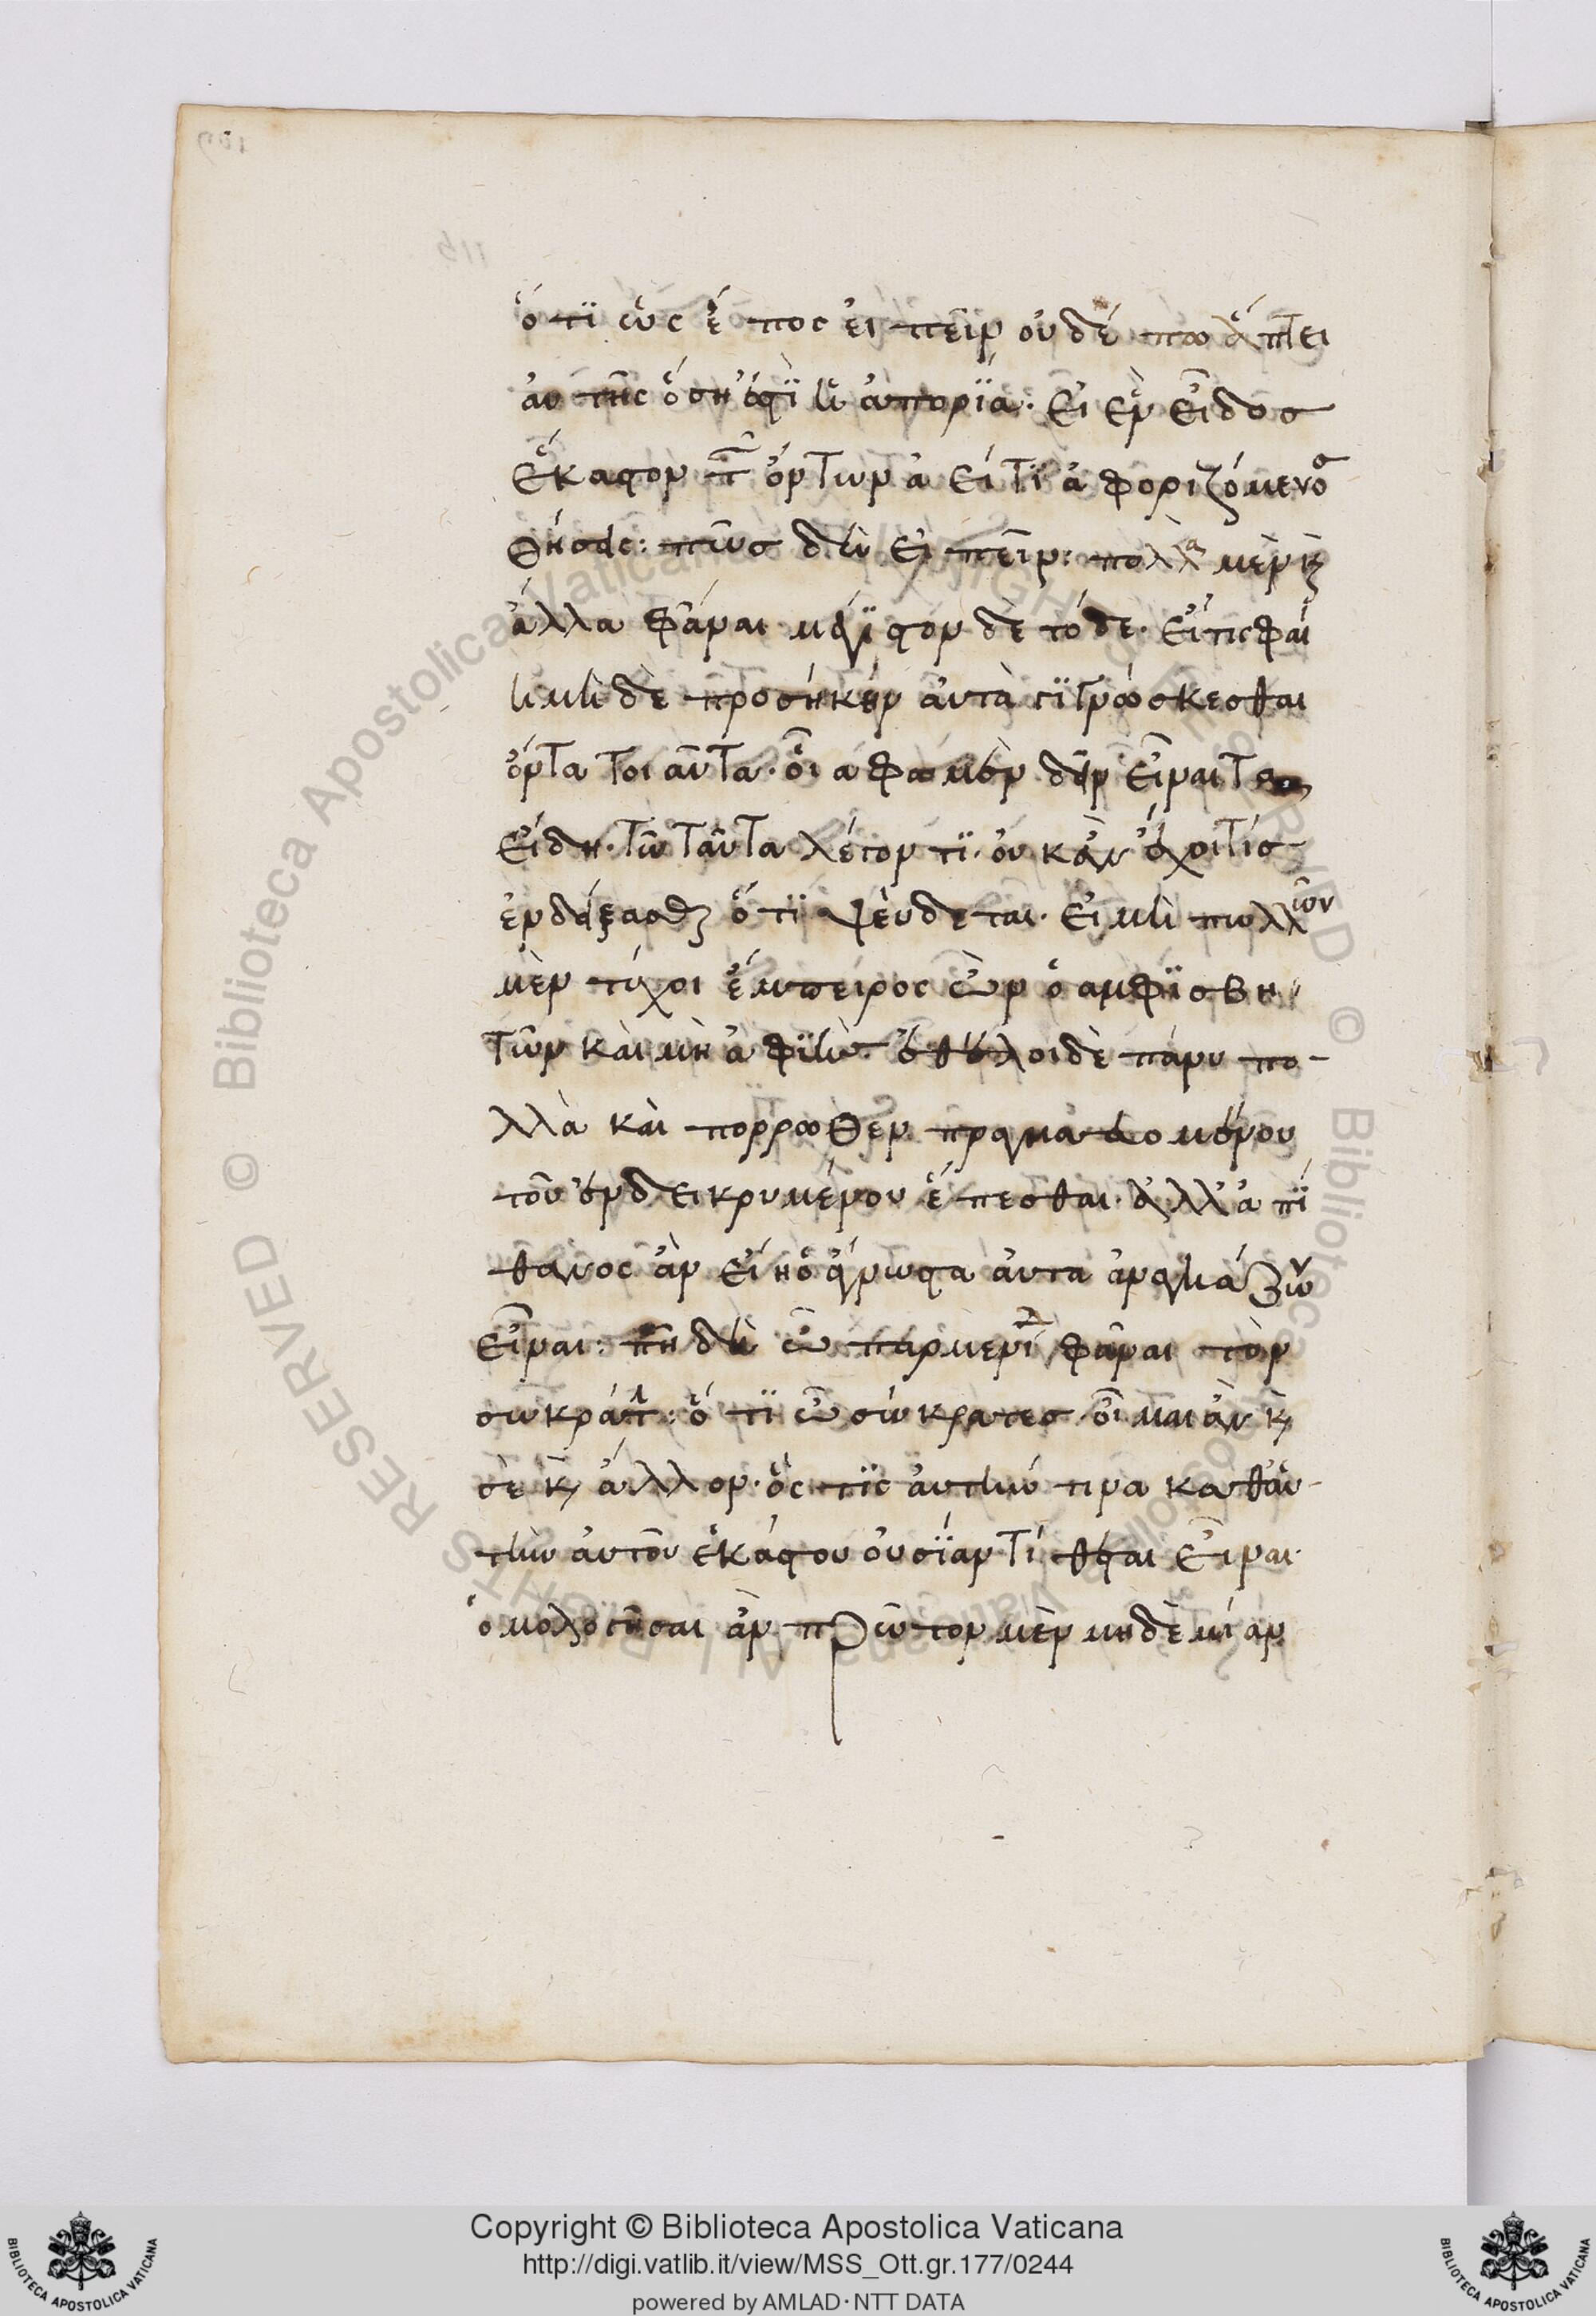 ὅτι ὡς ἔπος ειπεῖν οὐδέπω ἅπτει
αὐτῆς ὅση ἐστὶ ἡ ἀπορία· εἰ ἓν εἶδος
ἕκαστον τῶν ὄντων ἀεί τι ἀφοριζόμενος
θήσεις: πῶς δὴ εἰπεῖν: πολλὰ μὲν καὶ
ἄλλα φάναι μέγιστον δὲ τόδε· εἴτις φαί
η μὴ δὲ προσήκειν αὐτὰ γιγνώσκεσθαι
ὄντα τοιαῦτα· οἷά φαμεν δεῖν εἶναι τὰ
εἴδη· τῶ ταῦτα λέγοντι· οὐκ ἂν ἔχοι τίσ
ἐνδείξασθαι ὅτι ψεύδεται· εἰ μὴ πολλῶν
μὲν τύχοι ἔμπειρος ὢν ὁ αμφισβη
τῶν καὶ μὴ ἀφυὴς· ἐθέλοι δὲ πάνυ πο-
λλὰ καὶ πόρρωθεν πραγματευομένου
τοῦ ἐνδεικνυμένου ἕπεσθαι· ἀλλ' ἀπί
θανος ἂν εἴη ὁ ἄγνωστα ἀυτὰ ἀναγκάζων
εἶναι: πῆ δὴ ὦ παρμενίδη φάναι τὸν
σωκράτη: ὅτι ὦ σώκρατεσ οἶμαι ἂν καὶ
σὲ καὶ ἄλλον· ὅςτις ἀυτήν τινα καθ' αὑ
τὴν ἀυτοῦ ἑκάστου οὐσίαν τίθεται εἶναι·
ὁμολογῆσαι ἂν πρῶτον μὲν μηδὲμίαν
Copyright © Biblioteca Apostolica Vaticana
http://digi.vatlib.it/view/MSS_Ott.gr.177/0244
powered by AMLAD·NTT DATA